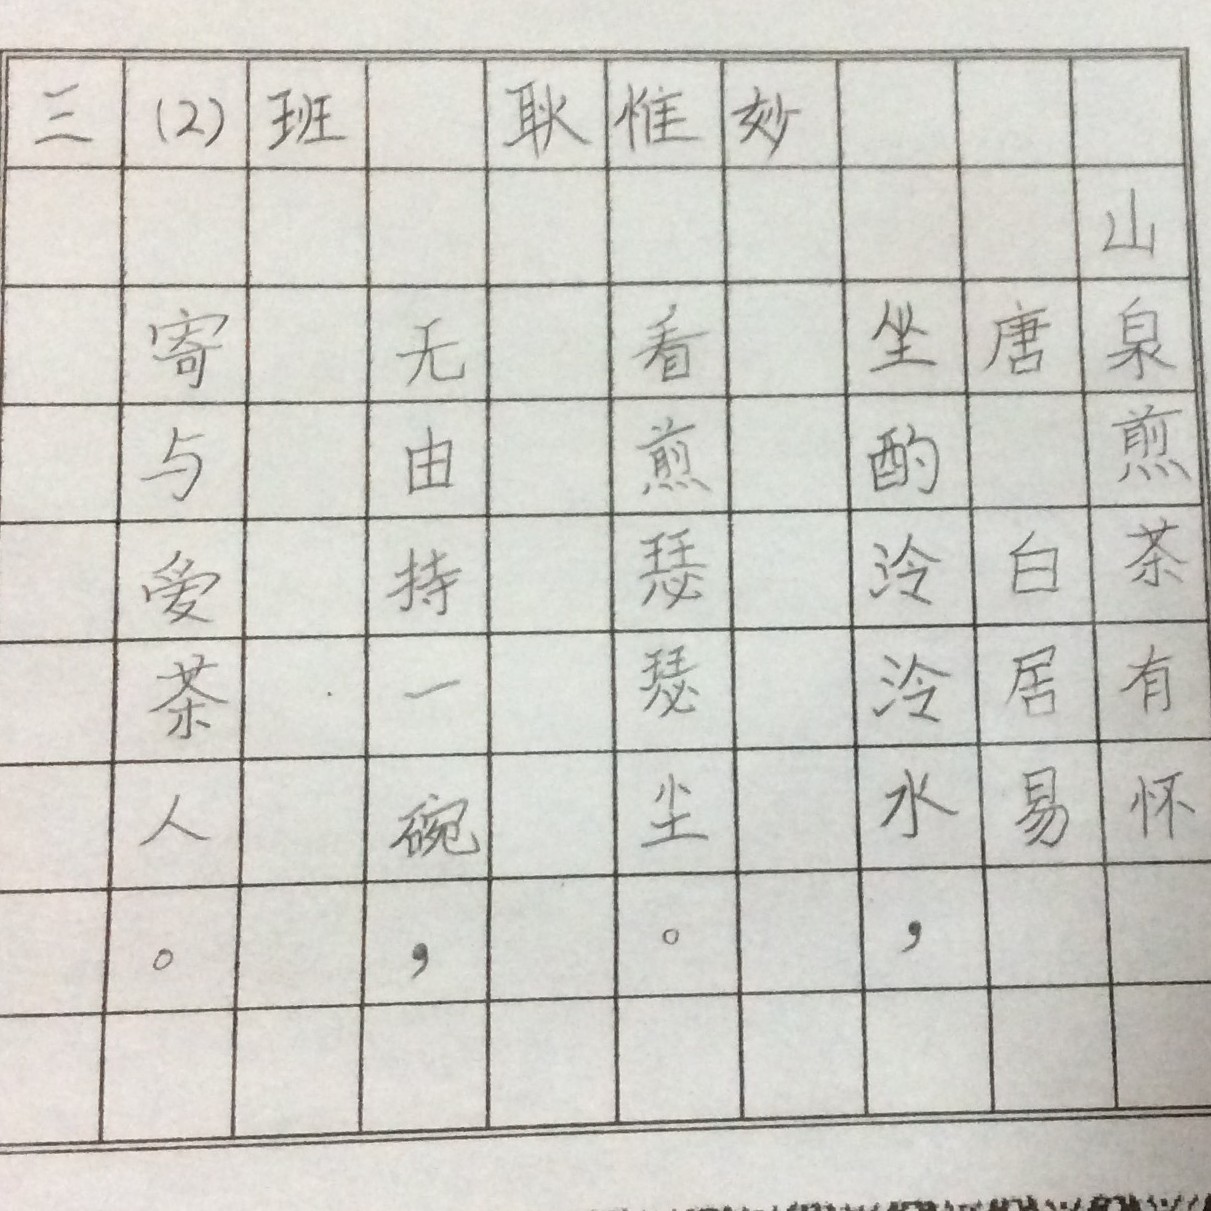 三(2)班 耿惟妙
山泉煎茶有怀
唐 白居易
坐酌泠泠水，
看煎瑟瑟尘。
无由持一碗，
寄与爱茶人。